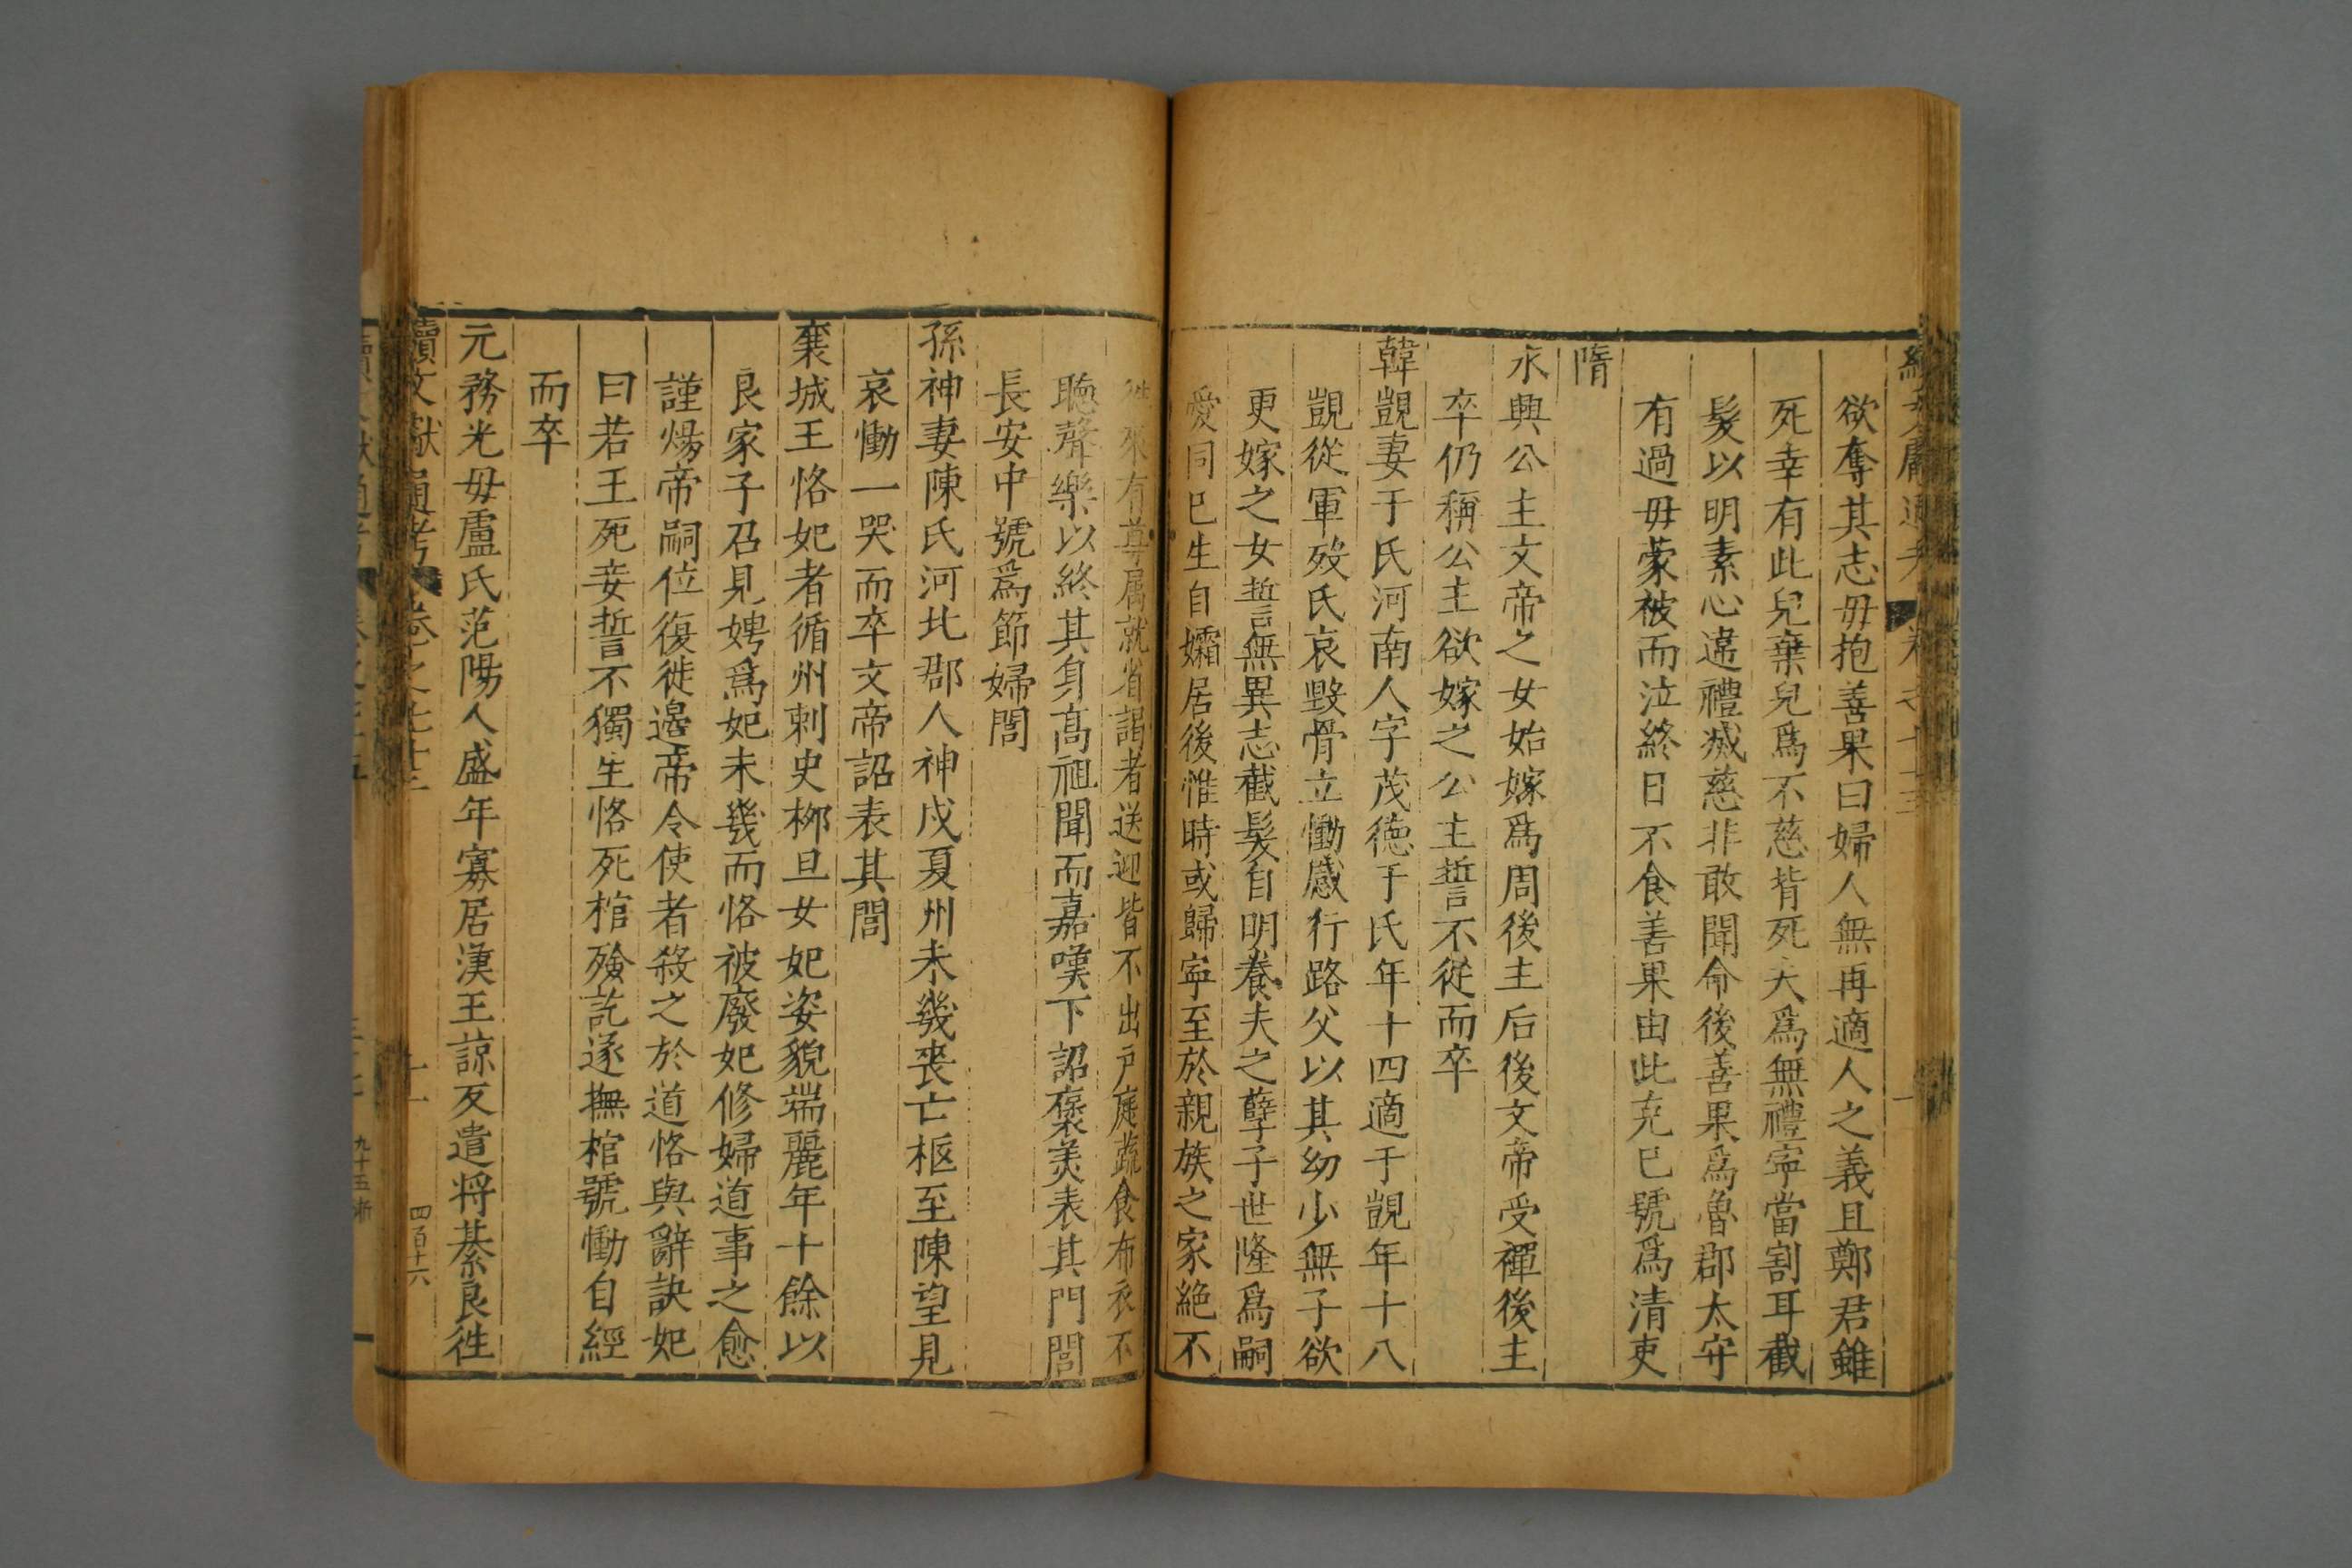 欲奪其志毋抱善果曰婦人無再適人之義且鄭君雖
死幸有此兒棄兒爲不慈背死夫爲無禮寧當割耳截
髮以明素心違禮滅慈非敢聞命後善果爲魯郡太守
有過毋蒙被而泣終日不食善果由此克己號爲清吏
隋
永興公主文帝之女始嫁爲周後主后後文帝受禪後主
卒仍稱公主欲嫁之公主誓不從而卒
韓覬妻于氏河南人字茂德于氏年十四適于覬年十八
覬從軍歿氏哀毀骨立慟感行路父以其幼少無子欲
更嫁之女誓無異志截髮自明養夫之孽子世隆爲嗣
愛同己生自孀居後惟時或歸寧至於親族之家絕不
往來有尊屬就省謁者送迎皆不出戶庭蔬食布衣不
聽聲樂以終其身高祖聞而嘉嘆下詔褒美表其門閭
長安中號爲節婦閭
孫神妻陳氏河北郡人神戍夏州未幾喪亡柩至陳望見
哀慟一哭而卒文帝詔表其閭
襄城王恪妃者循州刺史柳旦女妃姿貌端麗年十餘以
良家子召見娉爲妃未幾而恪被廢妃修婦道事之愈
謹煬帝嗣位復徙邊帝令使者殺之於道恪與辭訣妃
曰若王死妾誓不獨生恪死棺殮訖遂撫棺號慟自經
而卒
元務光毋盧氏范陽人盛年寡居漢王諒反遣将綦良徃
續文獻通考 卷之七十三 十一 四百十六